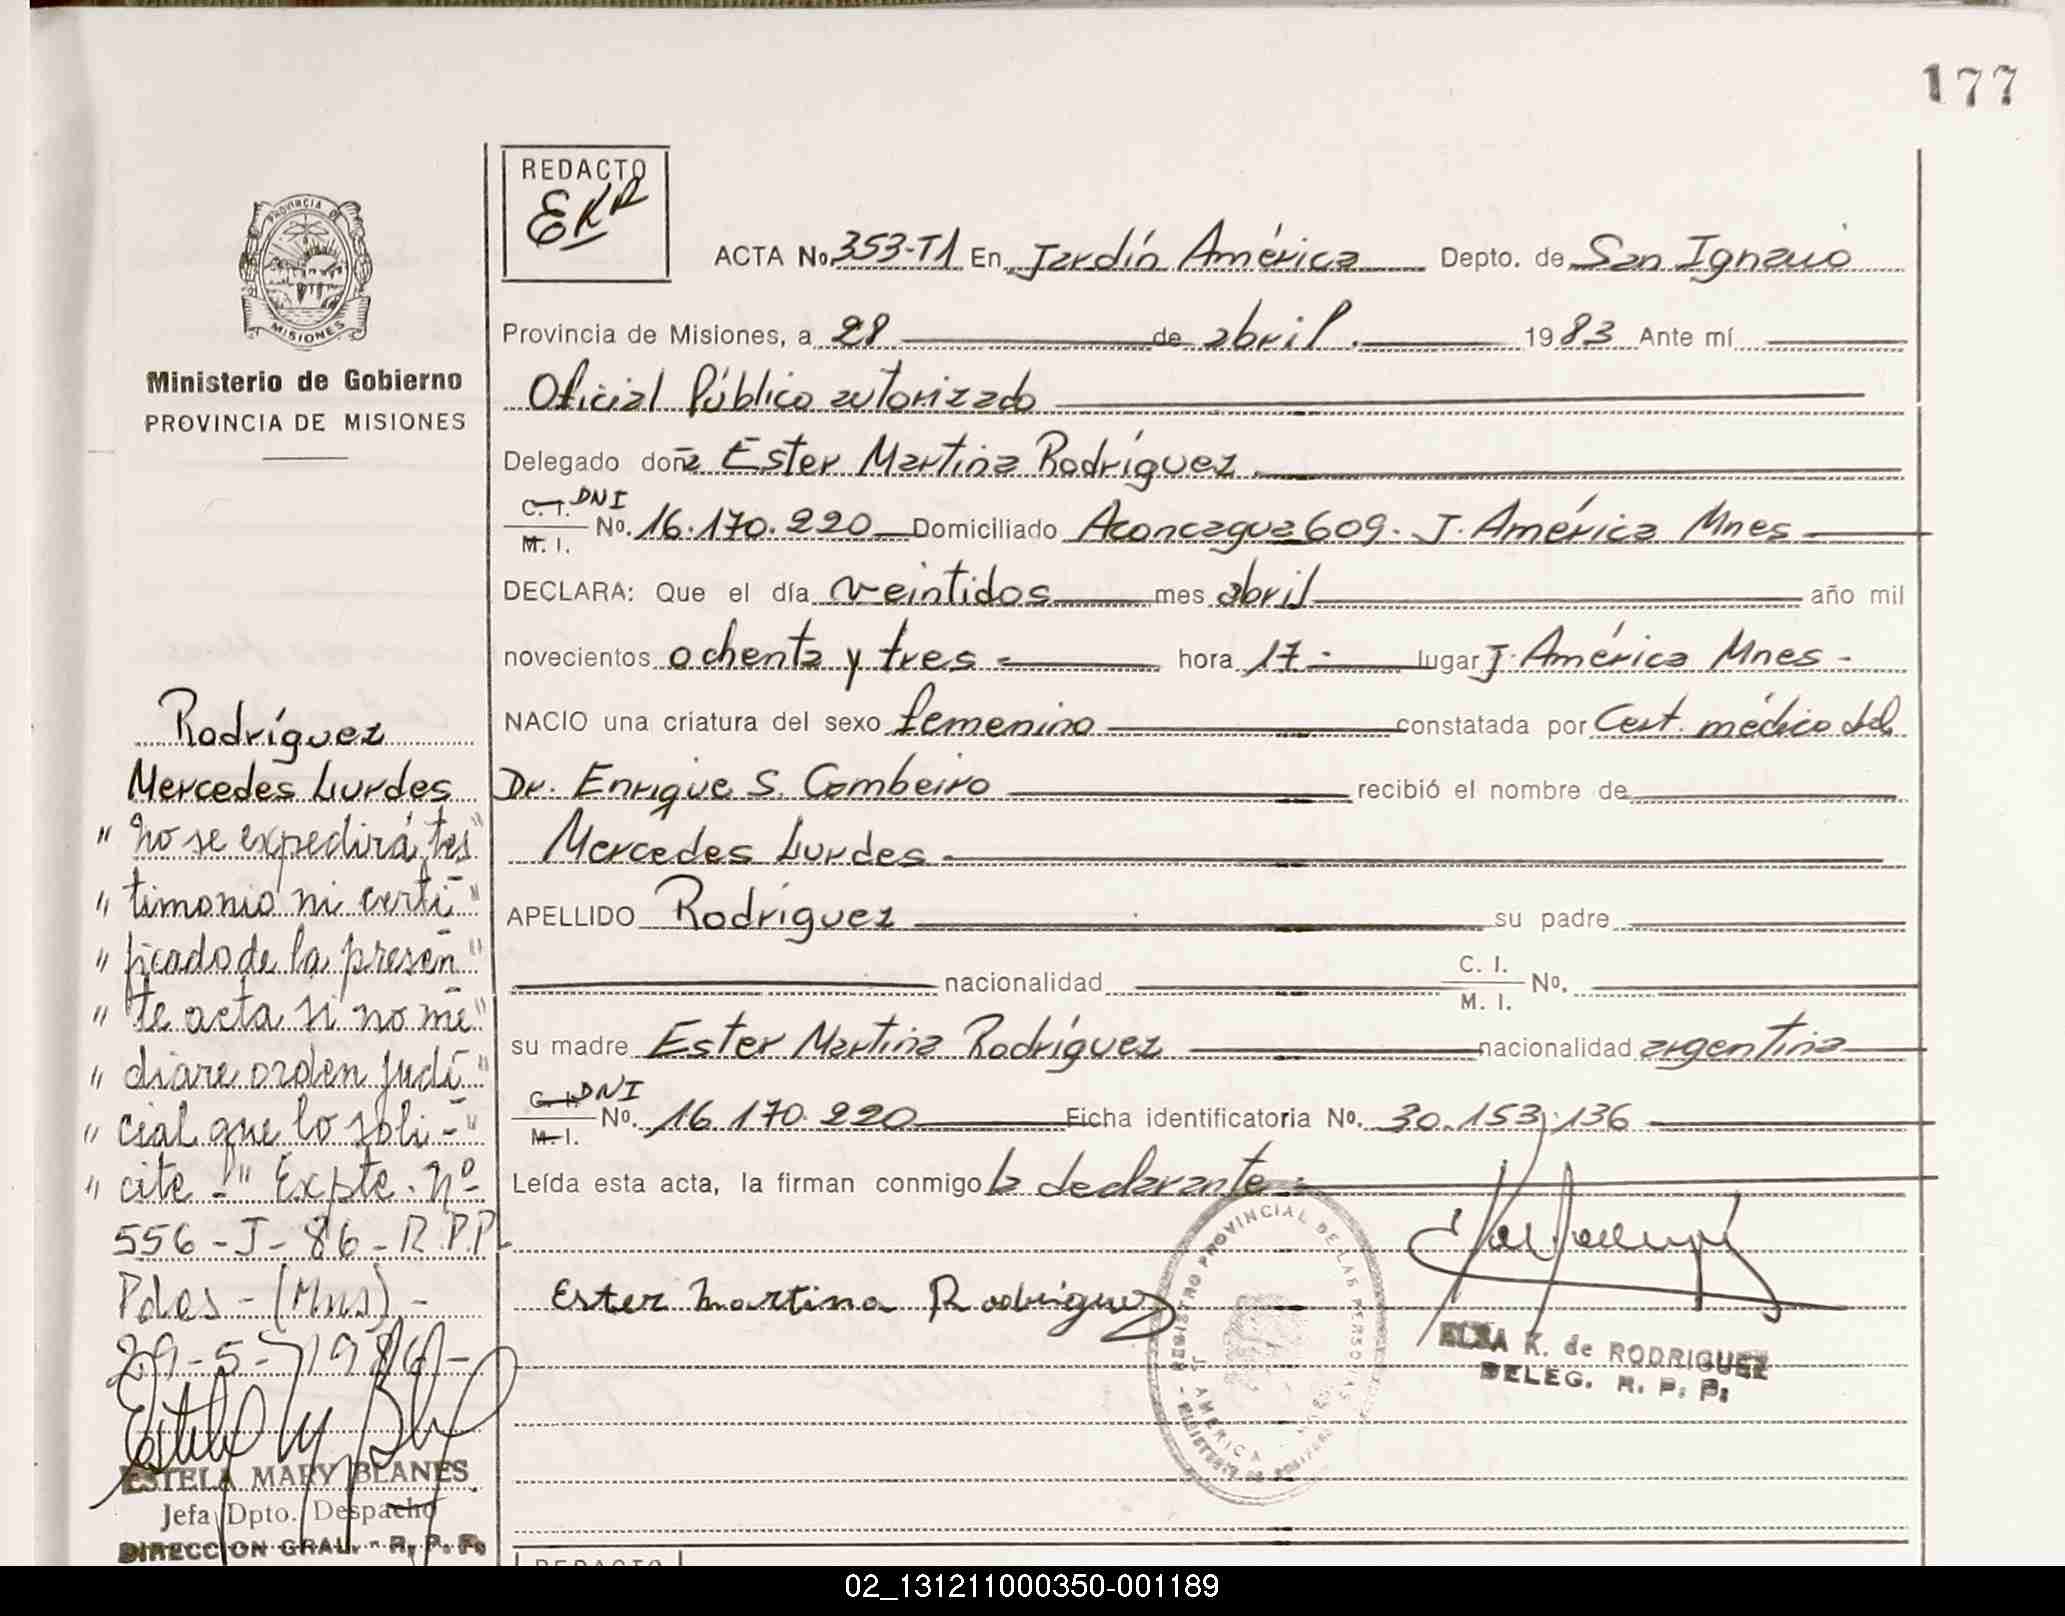 177
PROVINCIA DE
MISIONES
Ministerio de Gobierno
PROVINCIA DE MISIONES
Rodríguez
Mercedes Lurdes
" no se expedirá tes "
" timonio ni certi- "
" ficado de la presen- "
" te acta si no me- "
" diare orden judi- "
" cial que lo soli- "
" cite -" Expte. Nº
556-J-86-R.P.P.
Pdas - (Mns) -
29-5-1986-
ESTELA MARY BLANES
Jefa Dpto. Despacho
DIRECCION GRAL. - R. P. P.
REDACTO
EKR
ACTA No. 353-T1 En Jardín América Depto. de San Ignacio
Provincia de Misiones, a 28 de abril. 1983 Ante mí
Oficial Público autorizado
Delegado doña Ester Martina Rodríguez
C. I. DNI
M. I.
No. 16.170.220 Domiciliado Aconcagua 609. J. América Mnes
DECLARA: Que el día veintidos mes abril año mil
novecientos ochenta y tres - hora 17 - lugar J. América Mnes -
NACIO una criatura del sexo femenino constatada por Cert. médico del
Dr. Enrique S. Cambeiro recibió el nombre de
Mercedes Lurdes -
APELLIDO Rodríguez su padre
nacionalidad C. I.
M. I. No.
su madre Ester Martina Rodríguez nacionalidad argentina
C. I. DNI
M. I.
No. 16.170.220 Ficha identificatoria No. 30.153.136
Leída esta acta, la firman conmigo la declarante -
Ester Martina Rodriguez
REGISTRO PROVINCIAL DE LAS PERSONAS
J. AMERICA
ELSA K. de RODRIGUEZ
DELEG. R. P. P.
REDACTO
02_131211000350-001189